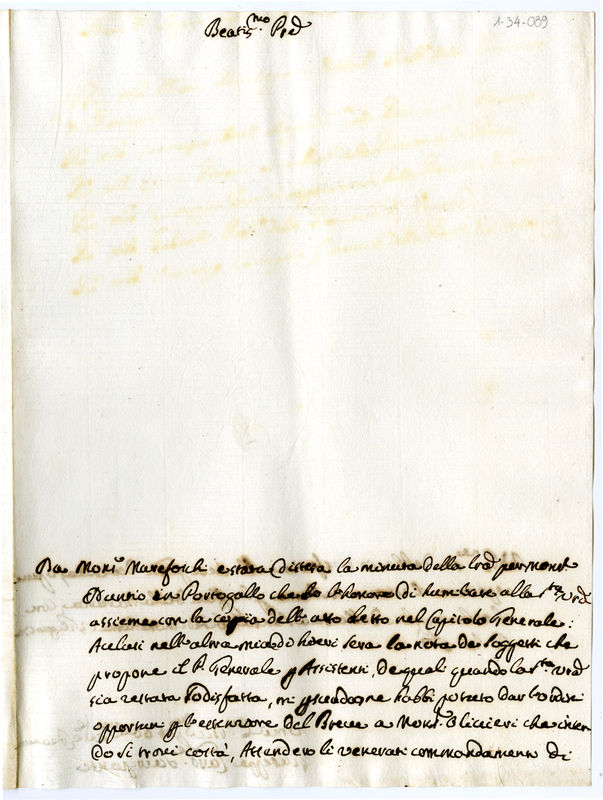 1-34-089
Beatis.mo Pre
Da Mons.r Marefoschi è stata distesa la minuta della per Mons.r
Nunzio in Portogallo che ho l'honore di humiliare alla S.tà Vrã
assieme con la copia dell'atto letto nel Capitolo Generale:
Acclusi nell'altra mia di hieri sera la nota de Soggetti che
propone il P. Generale p Assistenti, de quali quando la S.tà Vrã
sia restata sodisfatta, mi potrete dar l'ordine
opportun p l'estenzione del Breve a Mons.r Olivieri che inten
do si trovi costà, Attendero li venerati commandamenti di